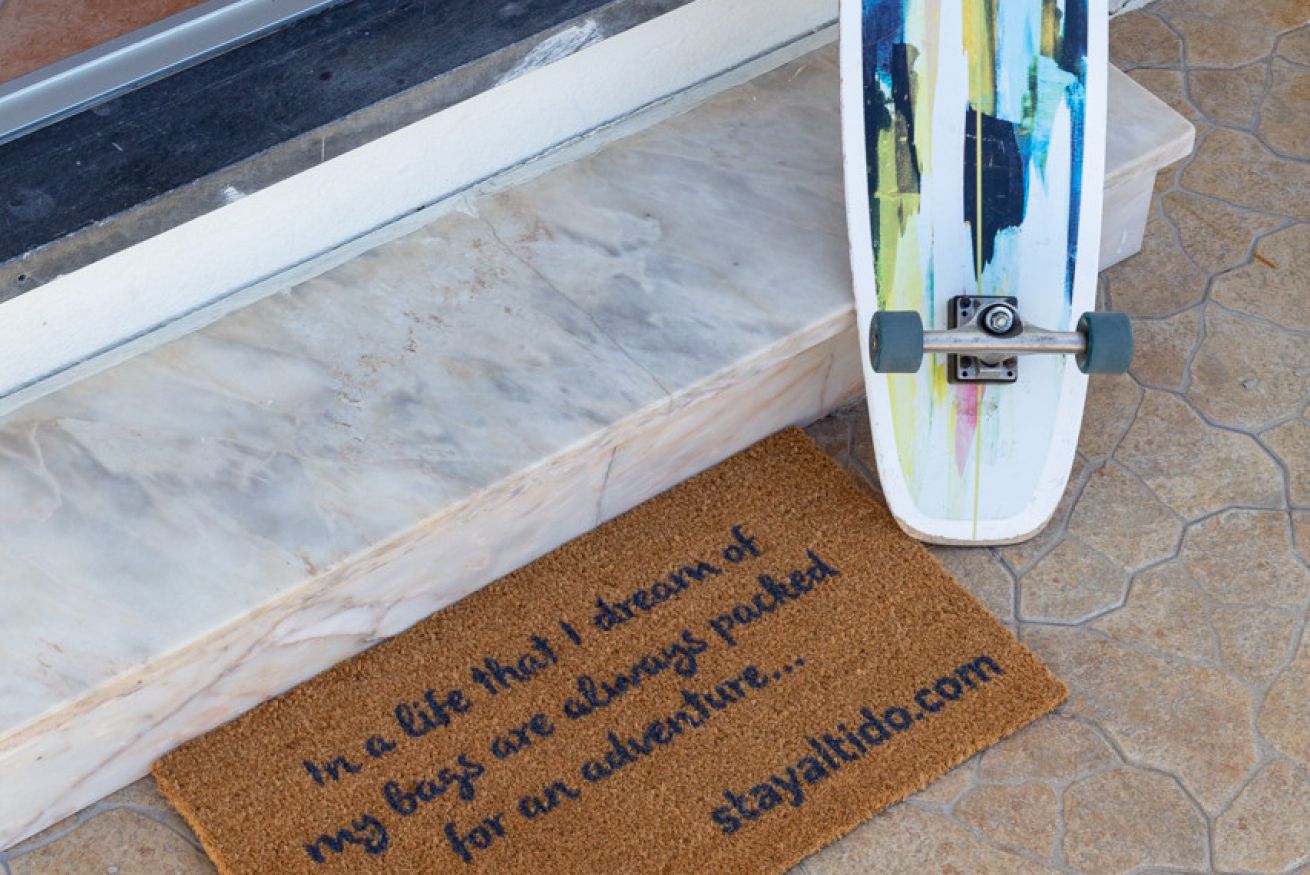 In a life that I dream of
my bags are always packed
for an adventure...
stayaltido.com